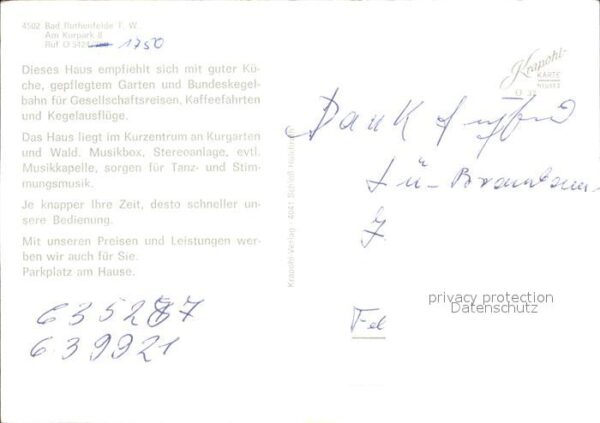 4502 Bad Rothenfelde T. W.
Am Kurpark 8
Ruf 0 5424 1750
Dieses Haus empfiehlt sich mit guter Kü-
che, gepflegtem Garten und Bundeskegel-
bahn für Gesellschaftsreisen, Kaffeefahrten
und Kegelausflüge.
Das Haus liegt im Kurzentrum an Kurgarten
und Wald. Musikbox, Stereoanlage, evtl.
Musikkapelle, sorgen für Tanz- und Stim-
mungsmusik.
Je knapper Ihre Zeit, desto schneller un-
sere Bedienung.
Mit unseren Preisen und Leistungen wer-
ben wir auch für Sie.
Parkplatz am Hause.
635287
639921
Krapohl-Verlag 4041 Schloß Hülchrath
Krapohl-
KARTE
Dank
Lü-
7.
Fel
privacy protection
Datenschutz